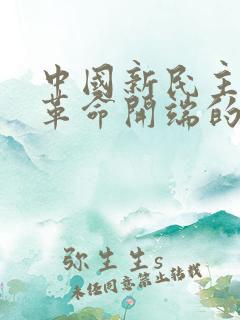 中國新民主
革命開端的
弥生生s
未经同意禁止转载